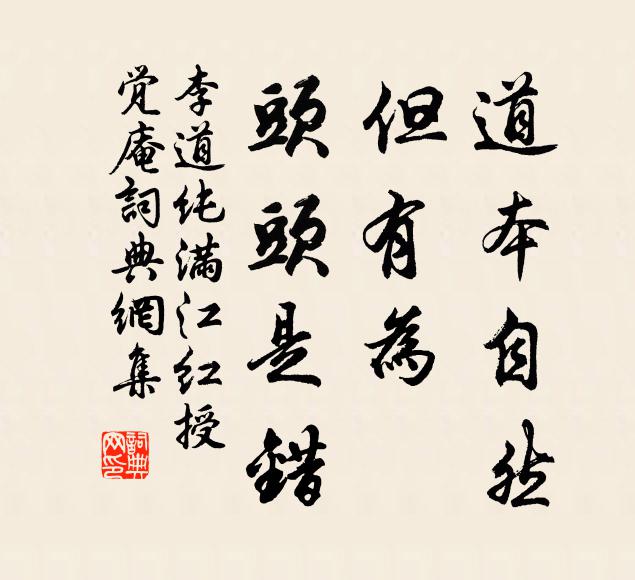 道本自然
但有為
頭頭是錯
李道純滿江紅授
覺庵詞典網集
詞典网印